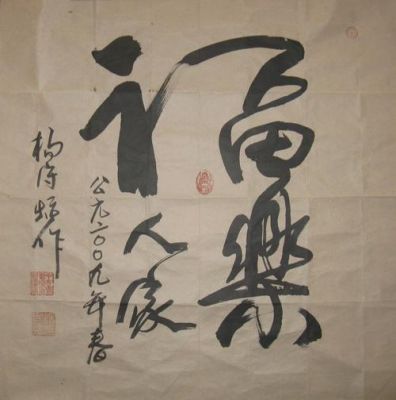 福樂
人家
公元二〇〇九年春
作